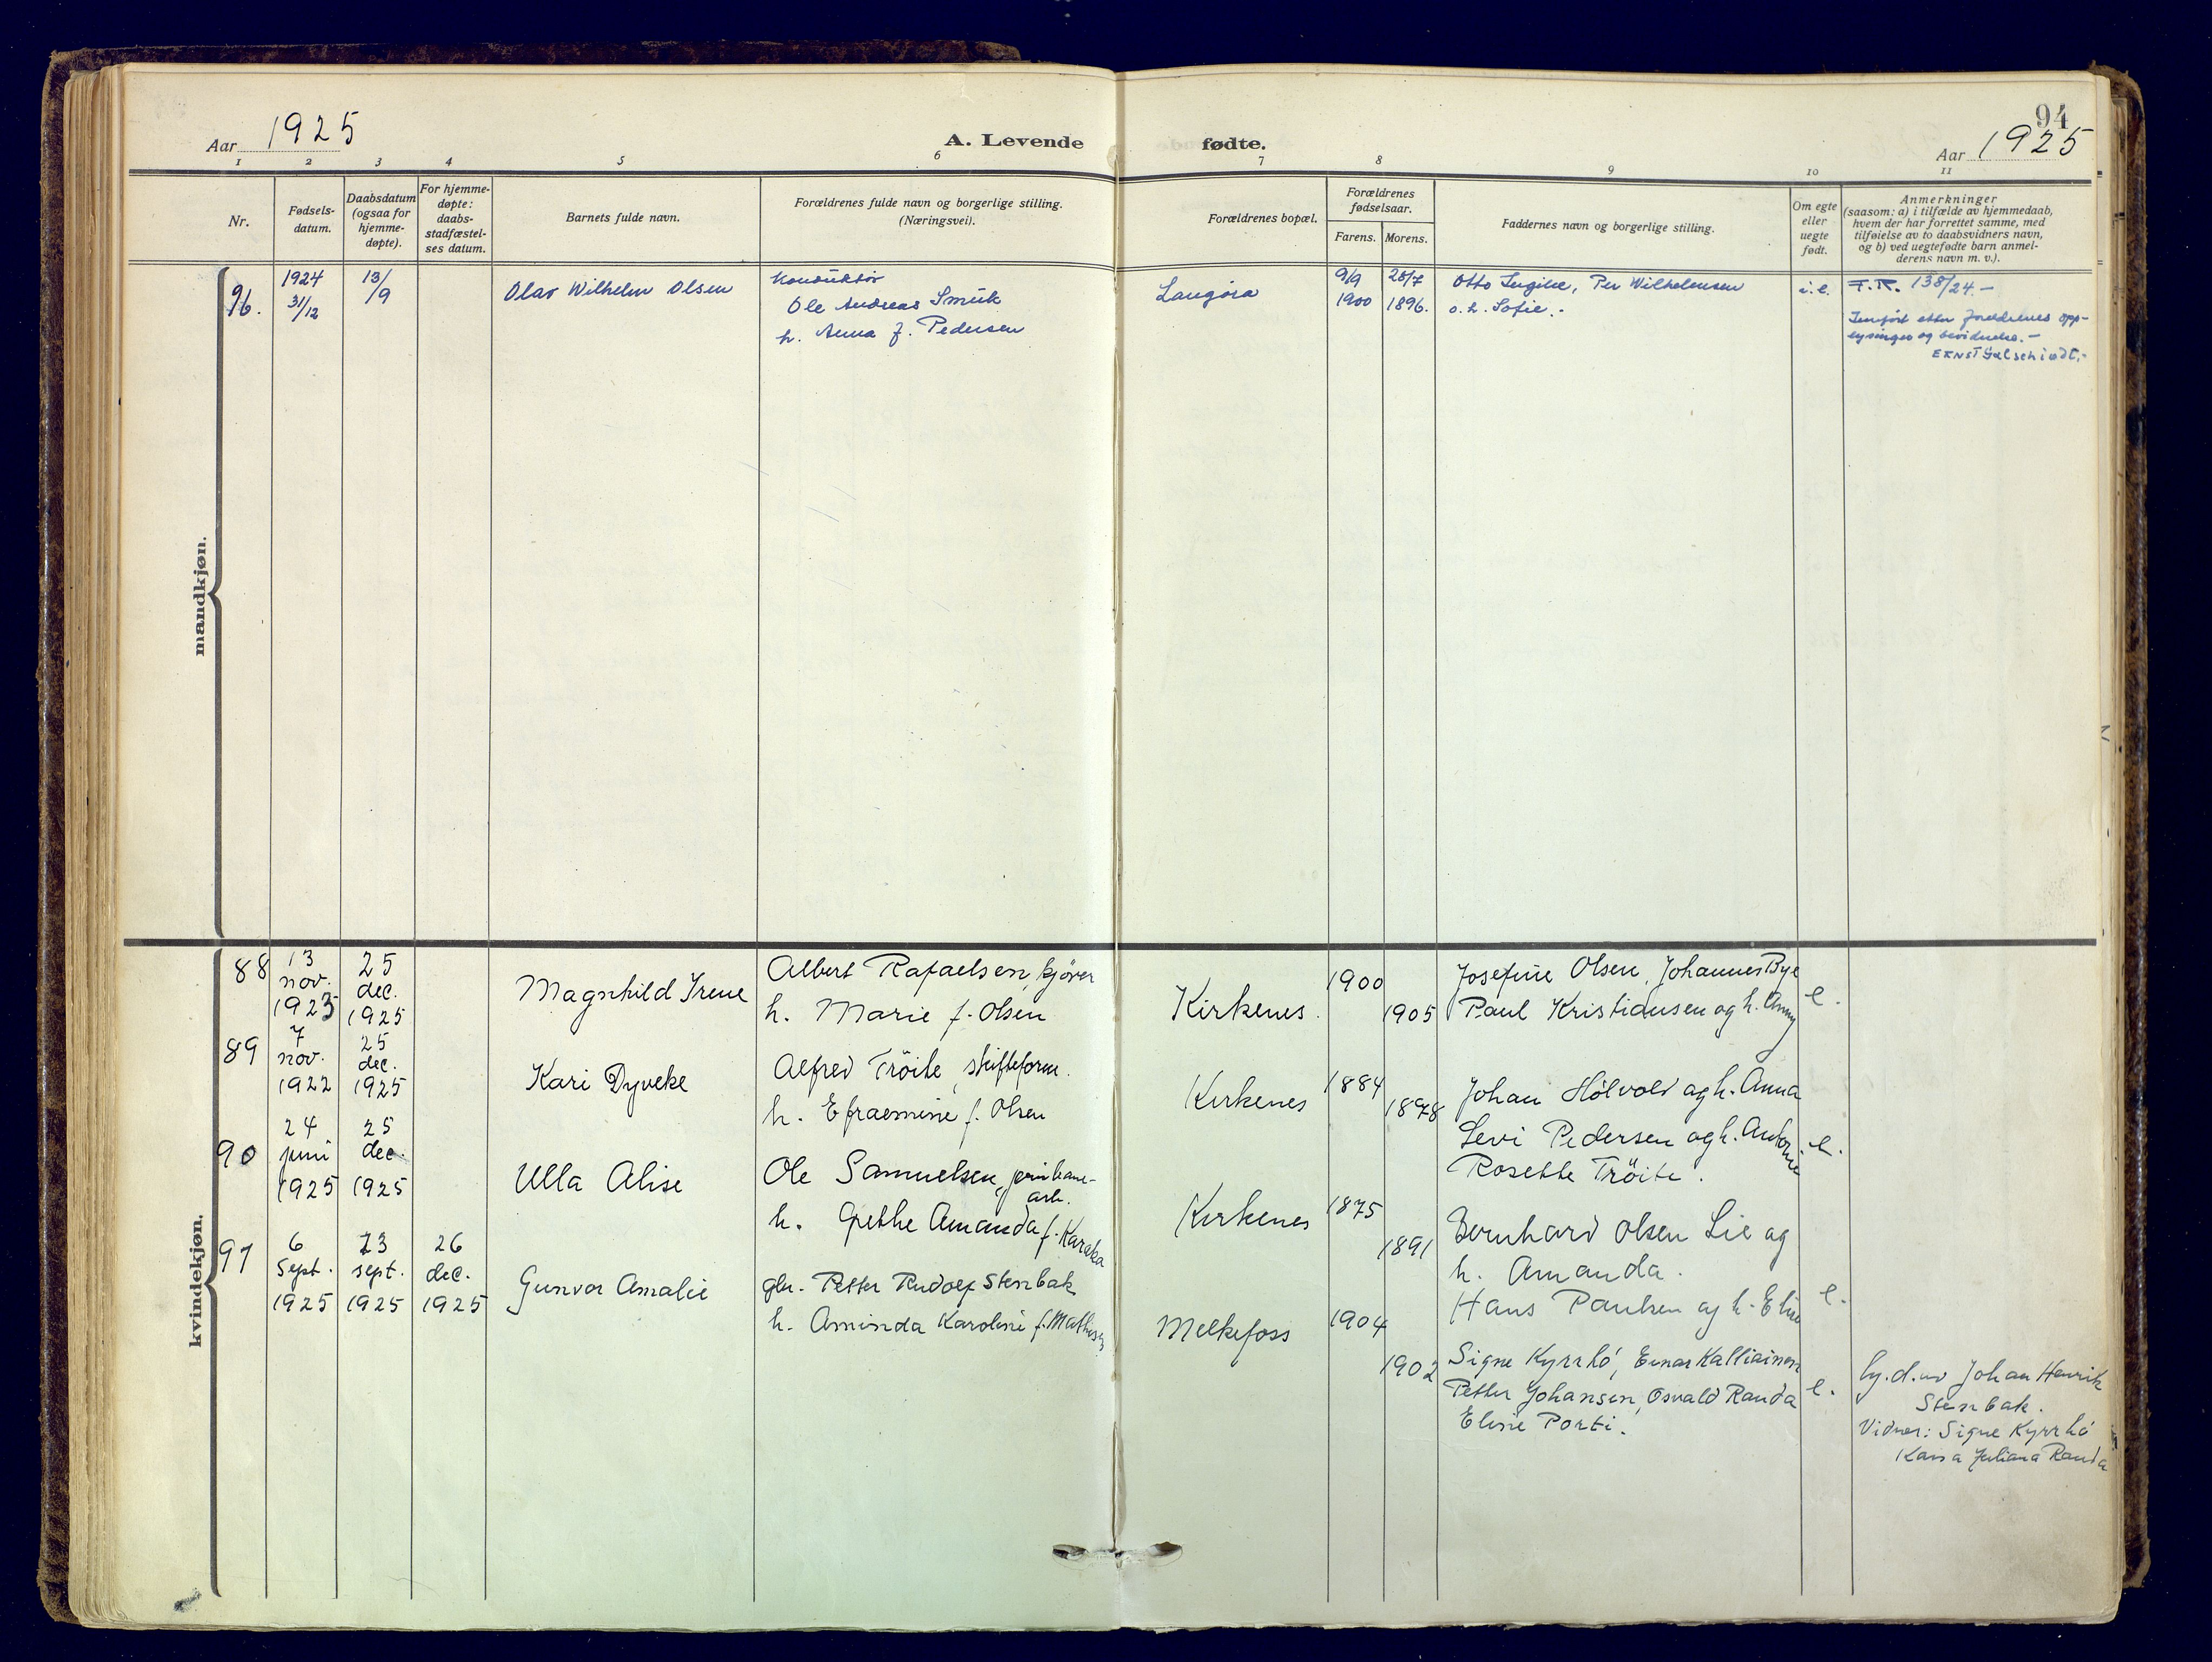 94
Aar 1925
A. Levende fødte.
Aar 1925
1 2 3 4 5 6 7 8 9 10 11
Nr.
Fødsels-
datum.
Daabsdatum
(ogsaa for
hjemme-
døpte).
For hjemme-
døpte:
daabs-
stadfæstel-
ses datum.
Barnets fulde navn.
Forældrenes fulde navn og borgerlige stilling.
(Næringsvei).
Forældrenes bopæl.
Forældrenes
fødselsaar.
Farens. Morens.
Faddernes navn og borgerlige stilling.
Om egte
eller
uegte
født.
Anmerkninger
(saasom: a) i tilfælde av hjemmedaab,
hvem der har forrettet samme, med
tilføielse av to daabsvidners navn,
og b) ved uegtefødte barn anmel-
derens navn m. v.).
mandkjøn.
96.
1924
31/12
13/
/9
Olav Wilhelm Olsen
Konduktör
Ole Andreas Smuk
h. Anna f. Pedersen
9/9
1900
28/7
1896.
Otto Per Wilhelmsen
o. h. Sofie.
i. e.
F.R. 138/24.-
Innført etter foreldrenes opp-
lysninger og bevidnelse.-
ERNST
kvindekjøn.
88
13
nov.
1923
25
dec.
1925
Magnhild Irene
Albert Rafaelsen, kjörer
h. Marie f. Olsen
Kirkenes.
1900
1905
Josefine Olsen, Johannes Bye
Paul Kristiansen og h. Anny
e.
89
7
nov.
1922
25
dec.
1925
Kari Dyveke
Alfred Tröite, skifteform.
h. Efraemine f. Olsen
Kirkenes
1884
1878
Johan Hölvold og h. Anna
Levi Pedersen og h. Antonie
Rosette Tröite.
e.
90
24
juni
1925
25
dec.
1925
Ulla Alise
Ole Samuelsen, jernbane-
arb.
h. Grethe Amanda f. Karaka
Kirkenes
1875
1891
Bernhard Olsen Lie og
h. Amanda.
Hans Paulsen og h. Eline
e.
91
6
sept.
1925
13
sept.
1925
26
dec.
1925
Gunvor Amalie
gbr. Petter Rudolf Stenbak
h. Aminda Karoline f. Mathisen
Melkefoss
1904
1902
Signe Kyrrhö, Einar Kalliainen
Petter Johansen, Osvald Randa
Eline Porti.
e.
hj. d. av Johan Henrik
Stenbak.
Vidner: Signe Kyrrhö
Kaisa Juliana Randa